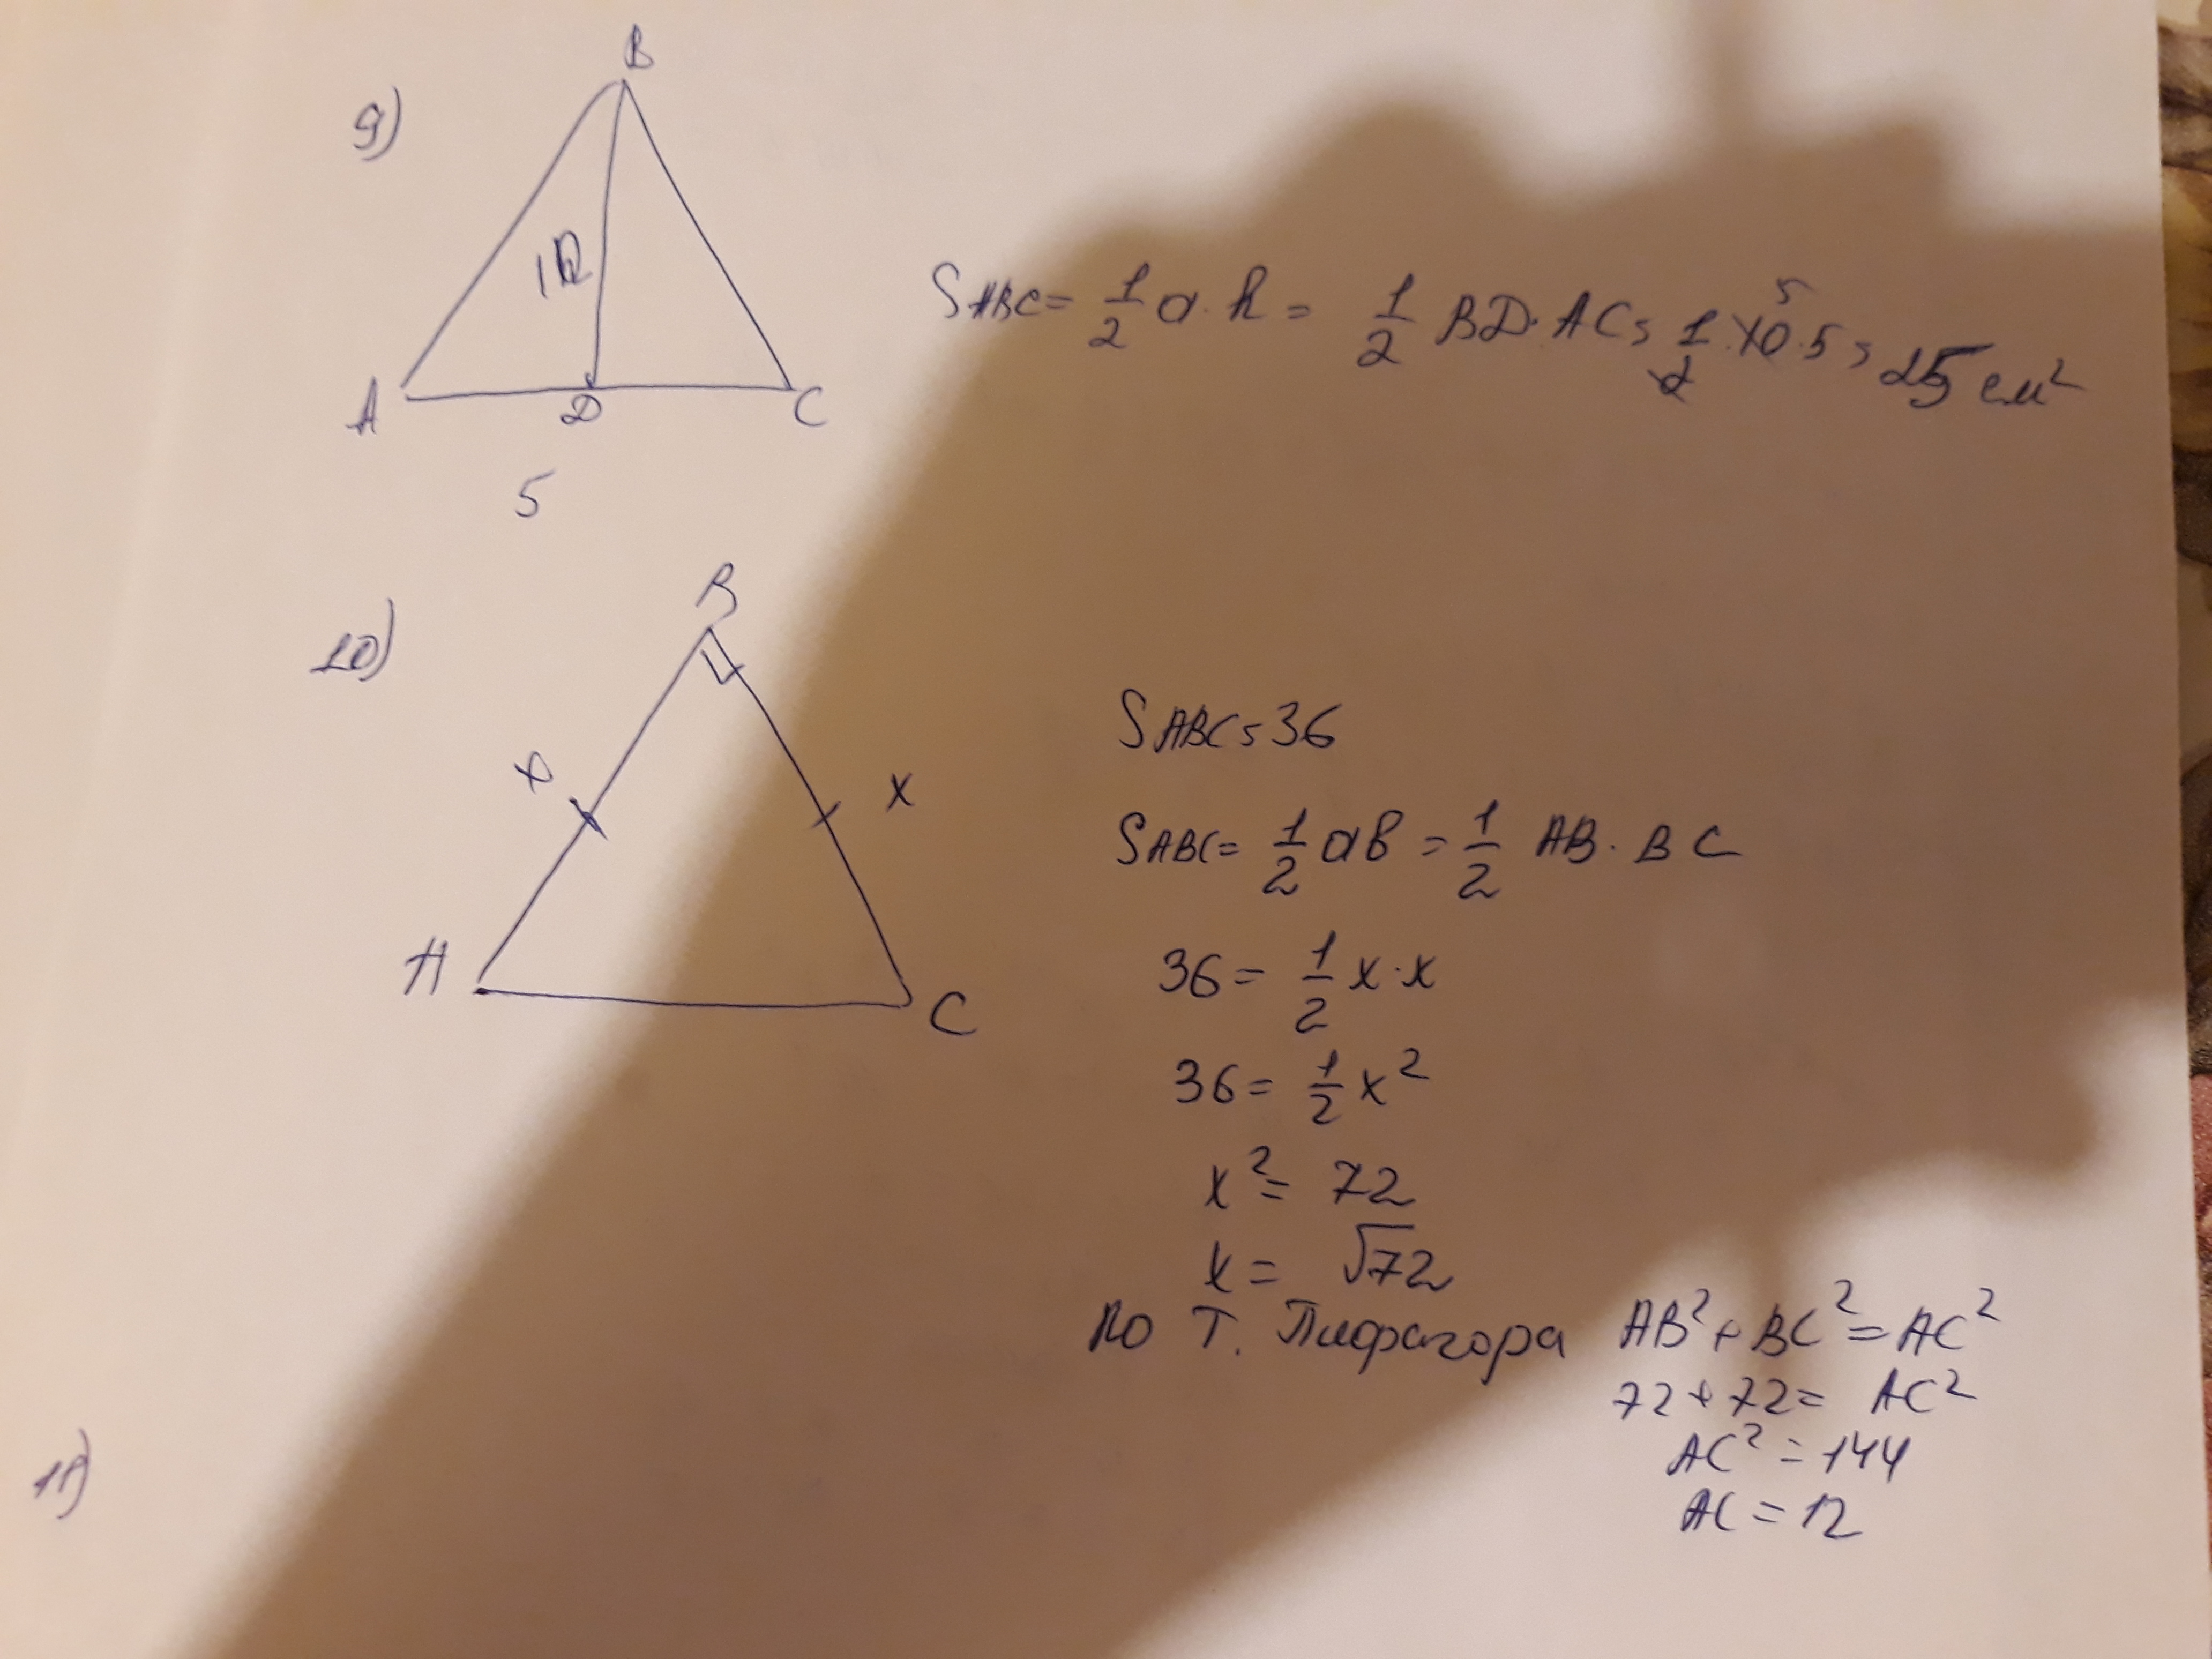 9)
B
10
A D C
5
S ABC = 1/2 a · h = 1/2 BD · AC = 1/2 · 10 · 5 = 25 см²
5
10)
B
x x
A C
S ABC = 36
S ABC = 1/2 ab = 1/2 AB · BC
36 = 1/2 x · x
36 = 1/2 x²
x² = 72
x = √72
По Т. Пифагора AB² + BC² = AC²
72 + 72 = AC²
AC² = 144
AC = 12
11)